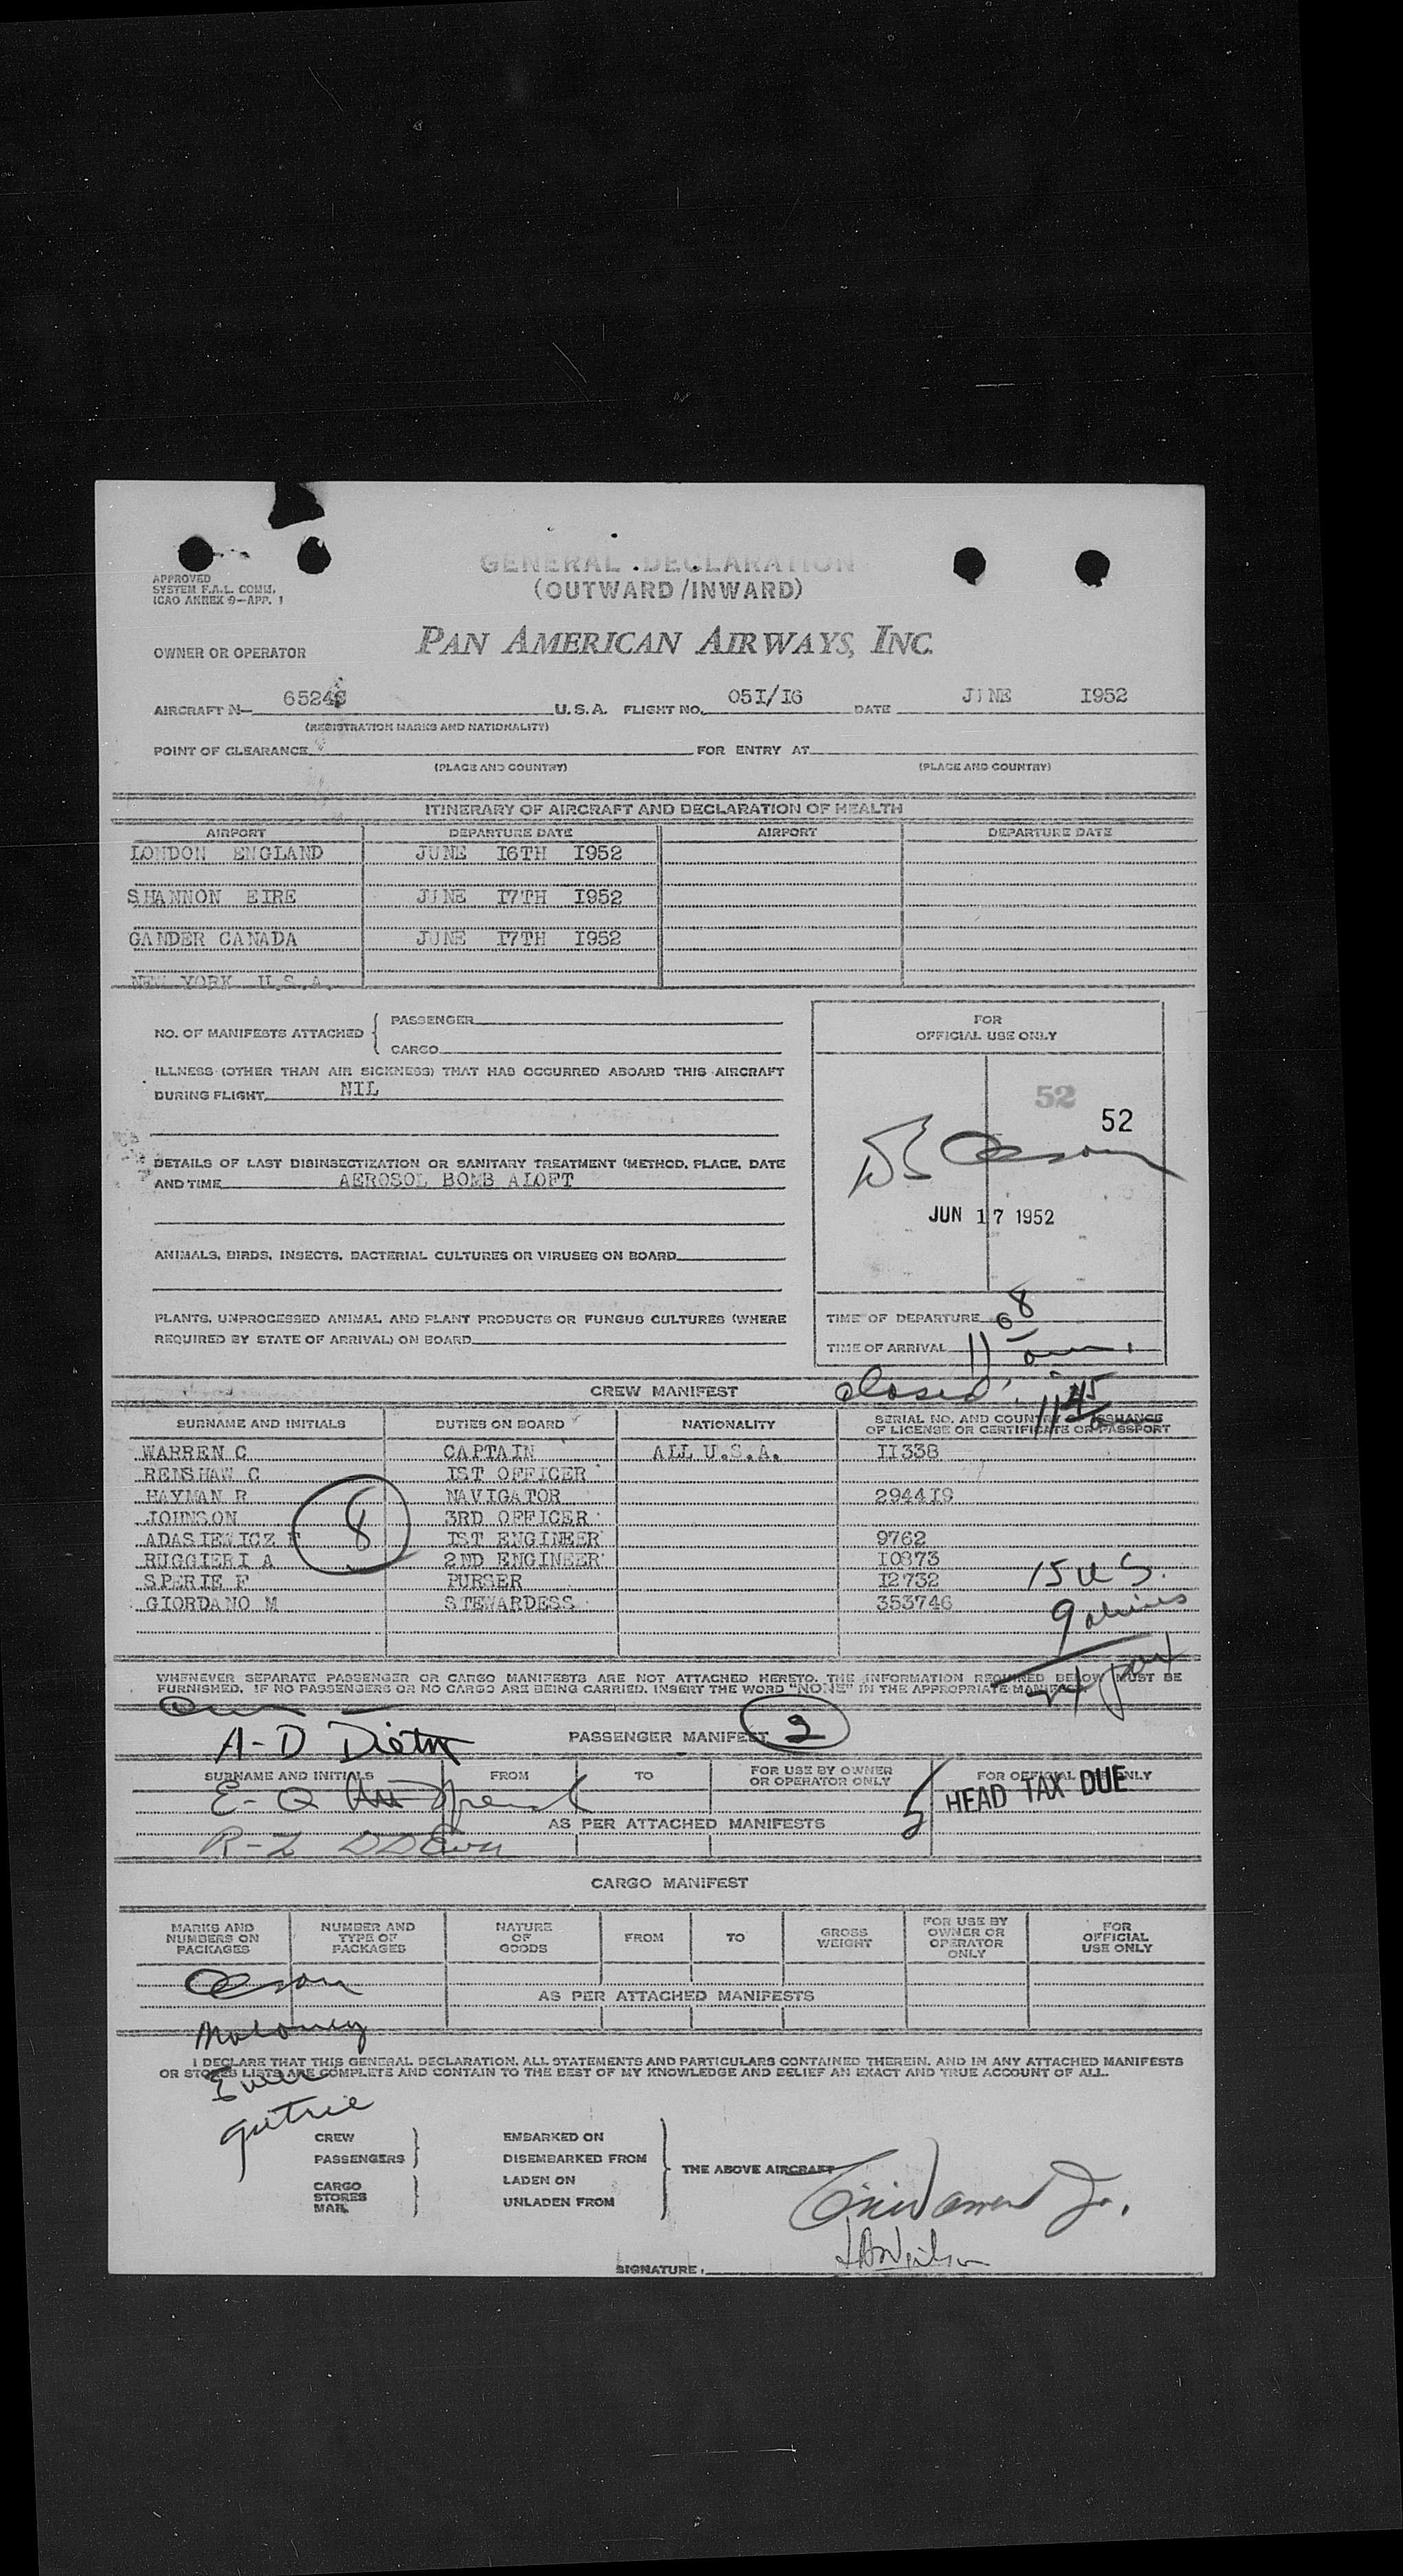 GENERAL DECLARATION
(OUTWARD/INWARD)
APPROVED
SYSTEM F.A.L. COMM.
ICAO ANNEX 9-APP. 1
OWNER OR OPERATOR PAN AMERICAN AIRWAYS, INC.
AIRCRAFT N- U.S.A. FLIGHT NO. 051/16 DATE JUNE 1952
(REGISTRATION MARKS AND NATIONALITY)
POINT OF CLEARANCE FOR ENTRY AT
(PLACE AND COUNTRY) (PLACE AND COUNTRY)
ITINERARY OF AIRCRAFT AND DECLARATION OF HEALTH
AIRPORT DEPARTURE DATE AIRPORT DEPARTURE DATE
LONDON ENGLAND JUNE 16TH 1952
SHANNON EIRE JUNE 17TH 1952
GANDER CANADA JUNE 17TH 1952
NEW YORK U.S.A.
NO. OF MANIFESTS ATTACHED { PASSENGER
CARGO
ILLNESS (OTHER THAN AIR SICKNESS) THAT HAS OCCURRED ABOARD THIS AIRCRAFT
DURING FLIGHT NIL
DETAILS OF LAST DISINSECTIZATION OR SANITARY TREATMENT (METHOD, PLACE, DATE
AND TIME AEROSOL BOMB ALOFT
ANIMALS, BIRDS, INSECTS, BACTERIAL CULTURES OR VIRUSES ON BOARD
PLANTS, UNPROCESSED ANIMAL AND PLANT PRODUCTS OR FUNGUS CULTURES (WHERE
REQUIRED BY STATE OF ARRIVAL) ON BOARD
FOR
OFFICIAL USE ONLY
52
52
JUN 17 1952
TIME OF DEPARTURE
TIME OF ARRIVAL 11
closed 11 45
CREW MANIFEST
SURNAME AND INITIALS DUTIES ON BOARD NATIONALITY SERIAL NO. AND COUNTRY OF ISSUANCE
OF LICENSE OR CERTIFICATE OR PASSPORT
WARREN C CAPTAIN ALL U.S.A. 11338
RENSHAW C 1ST OFFICER
HAYMAN R NAVIGATOR 294419
JOHNSON 3RD OFFICER
ADASIEWICZ F 1ST ENGINEER 9762
RUGGIERI A 2ND ENGINEER 10873
SPERIE F PURSER 12732
GIORDANO M STEWARDESS 353746
8
15 US.
9 aliens
24
WHENEVER SEPARATE PASSENGER OR CARGO MANIFESTS ARE NOT ATTACHED HERETO, THE INFORMATION REQUIRED BELOW MUST BE
FURNISHED. IF NO PASSENGERS OR NO CARGO ARE BEING CARRIED, INSERT THE WORD "NONE" IN THE APPROPRIATE MANIFEST.
A-D
PASSENGER MANIFEST 2
SURNAME AND INITIALS FROM TO FOR USE BY OWNER
OR OPERATOR ONLY FOR OFFICIAL USE ONLY
E-Q
5 HEAD TAX DUE
AS PER ATTACHED MANIFESTS
R-Z
CARGO MANIFEST
MARKS AND
NUMBERS ON
PACKAGES
NUMBER AND
TYPE OF
PACKAGES
NATURE
OF
GOODS
FROM
TO
GROSS
WEIGHT
FOR USE BY
OWNER OR
OPERATOR
ONLY
FOR
OFFICIAL
USE ONLY
AS PER ATTACHED MANIFESTS
Oleson
Moloney
I DECLARE THAT THIS GENERAL DECLARATION, ALL STATEMENTS AND PARTICULARS CONTAINED THEREIN, AND IN ANY ATTACHED MANIFESTS
OR STORES LISTS ARE COMPLETE AND CONTAIN TO THE BEST OF MY KNOWLEDGE AND BELIEF AN EXACT AND TRUE ACCOUNT OF ALL.
CREW
PASSENGERS
CARGO
STORES
MAIL
EMBARKED ON
DISEMBARKED FROM
LADEN ON
UNLADEN FROM
THE ABOVE AIRCRAFT
SIGNATURE